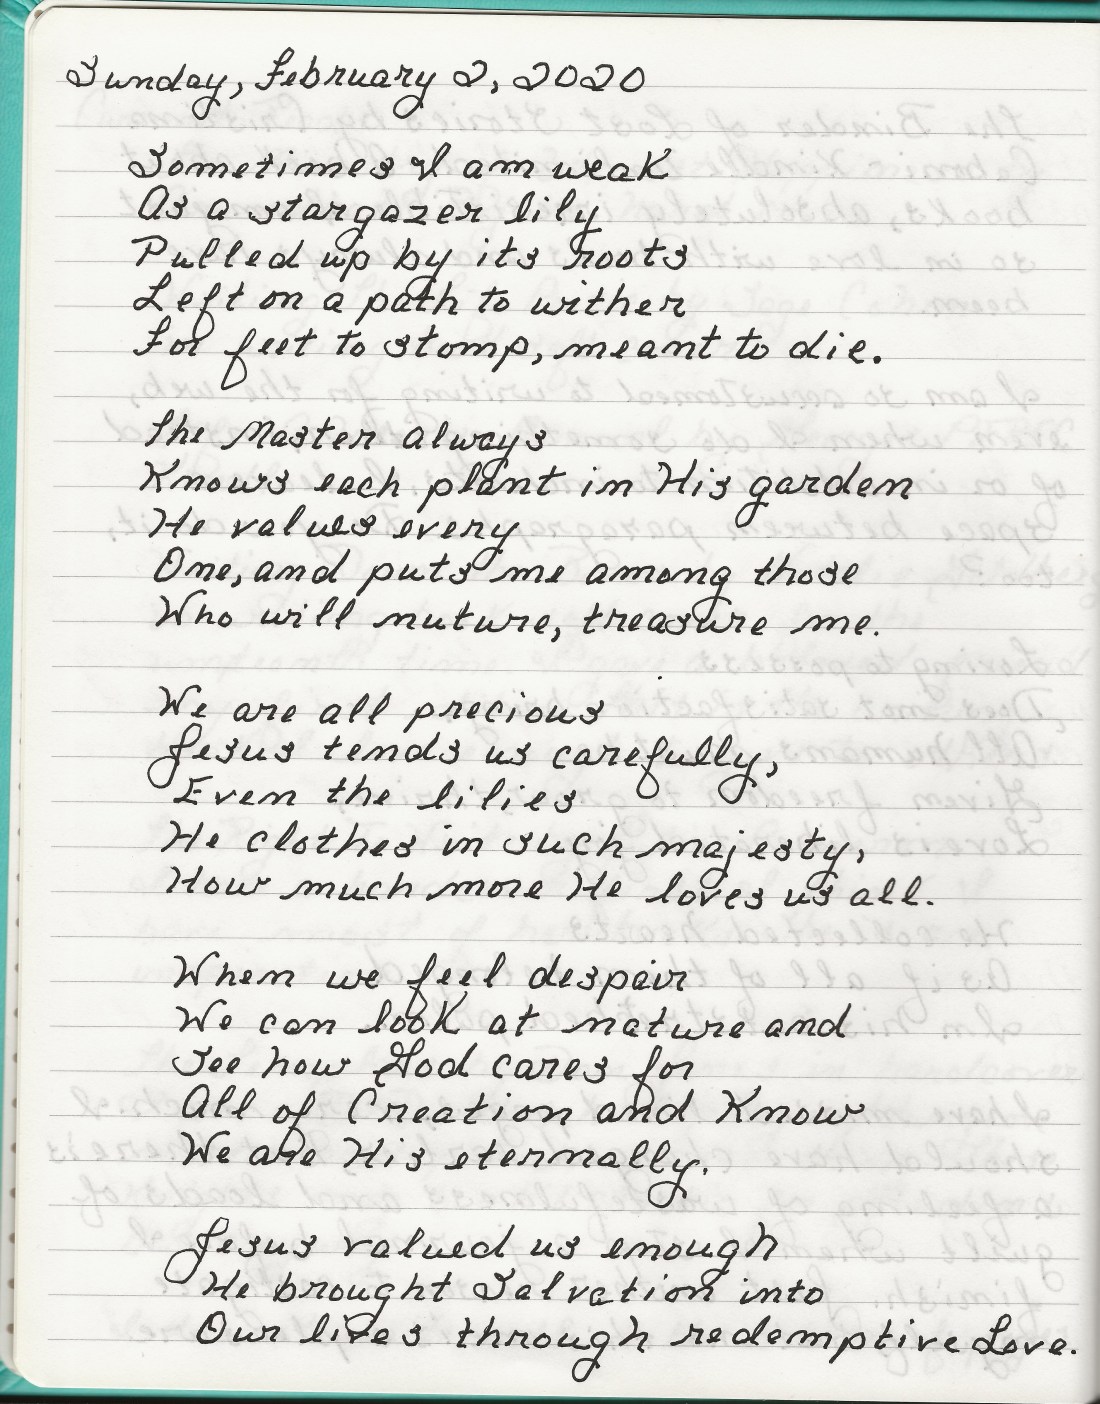 Sunday, February 2, 2020
Sometimes I am weak
As a stargazer lily
Pulled up by its roots
Left on a path to wither
For feet to stomp, meant to die.
The Master always
Knows each plant in His garden
He values every
One, and puts me among those
Who will nuture, treasure me.
We are all precious
Jesus tends us carefully,
Even the lilies
He clothes in such majesty,
How much more He loves us all.
When we feel despair
We can look at nature and
See how God cares for
All of Creation and Know
We are His eternally.
Jesus valued us enough
He brought Salvation into
Our lives through redemptive Love.